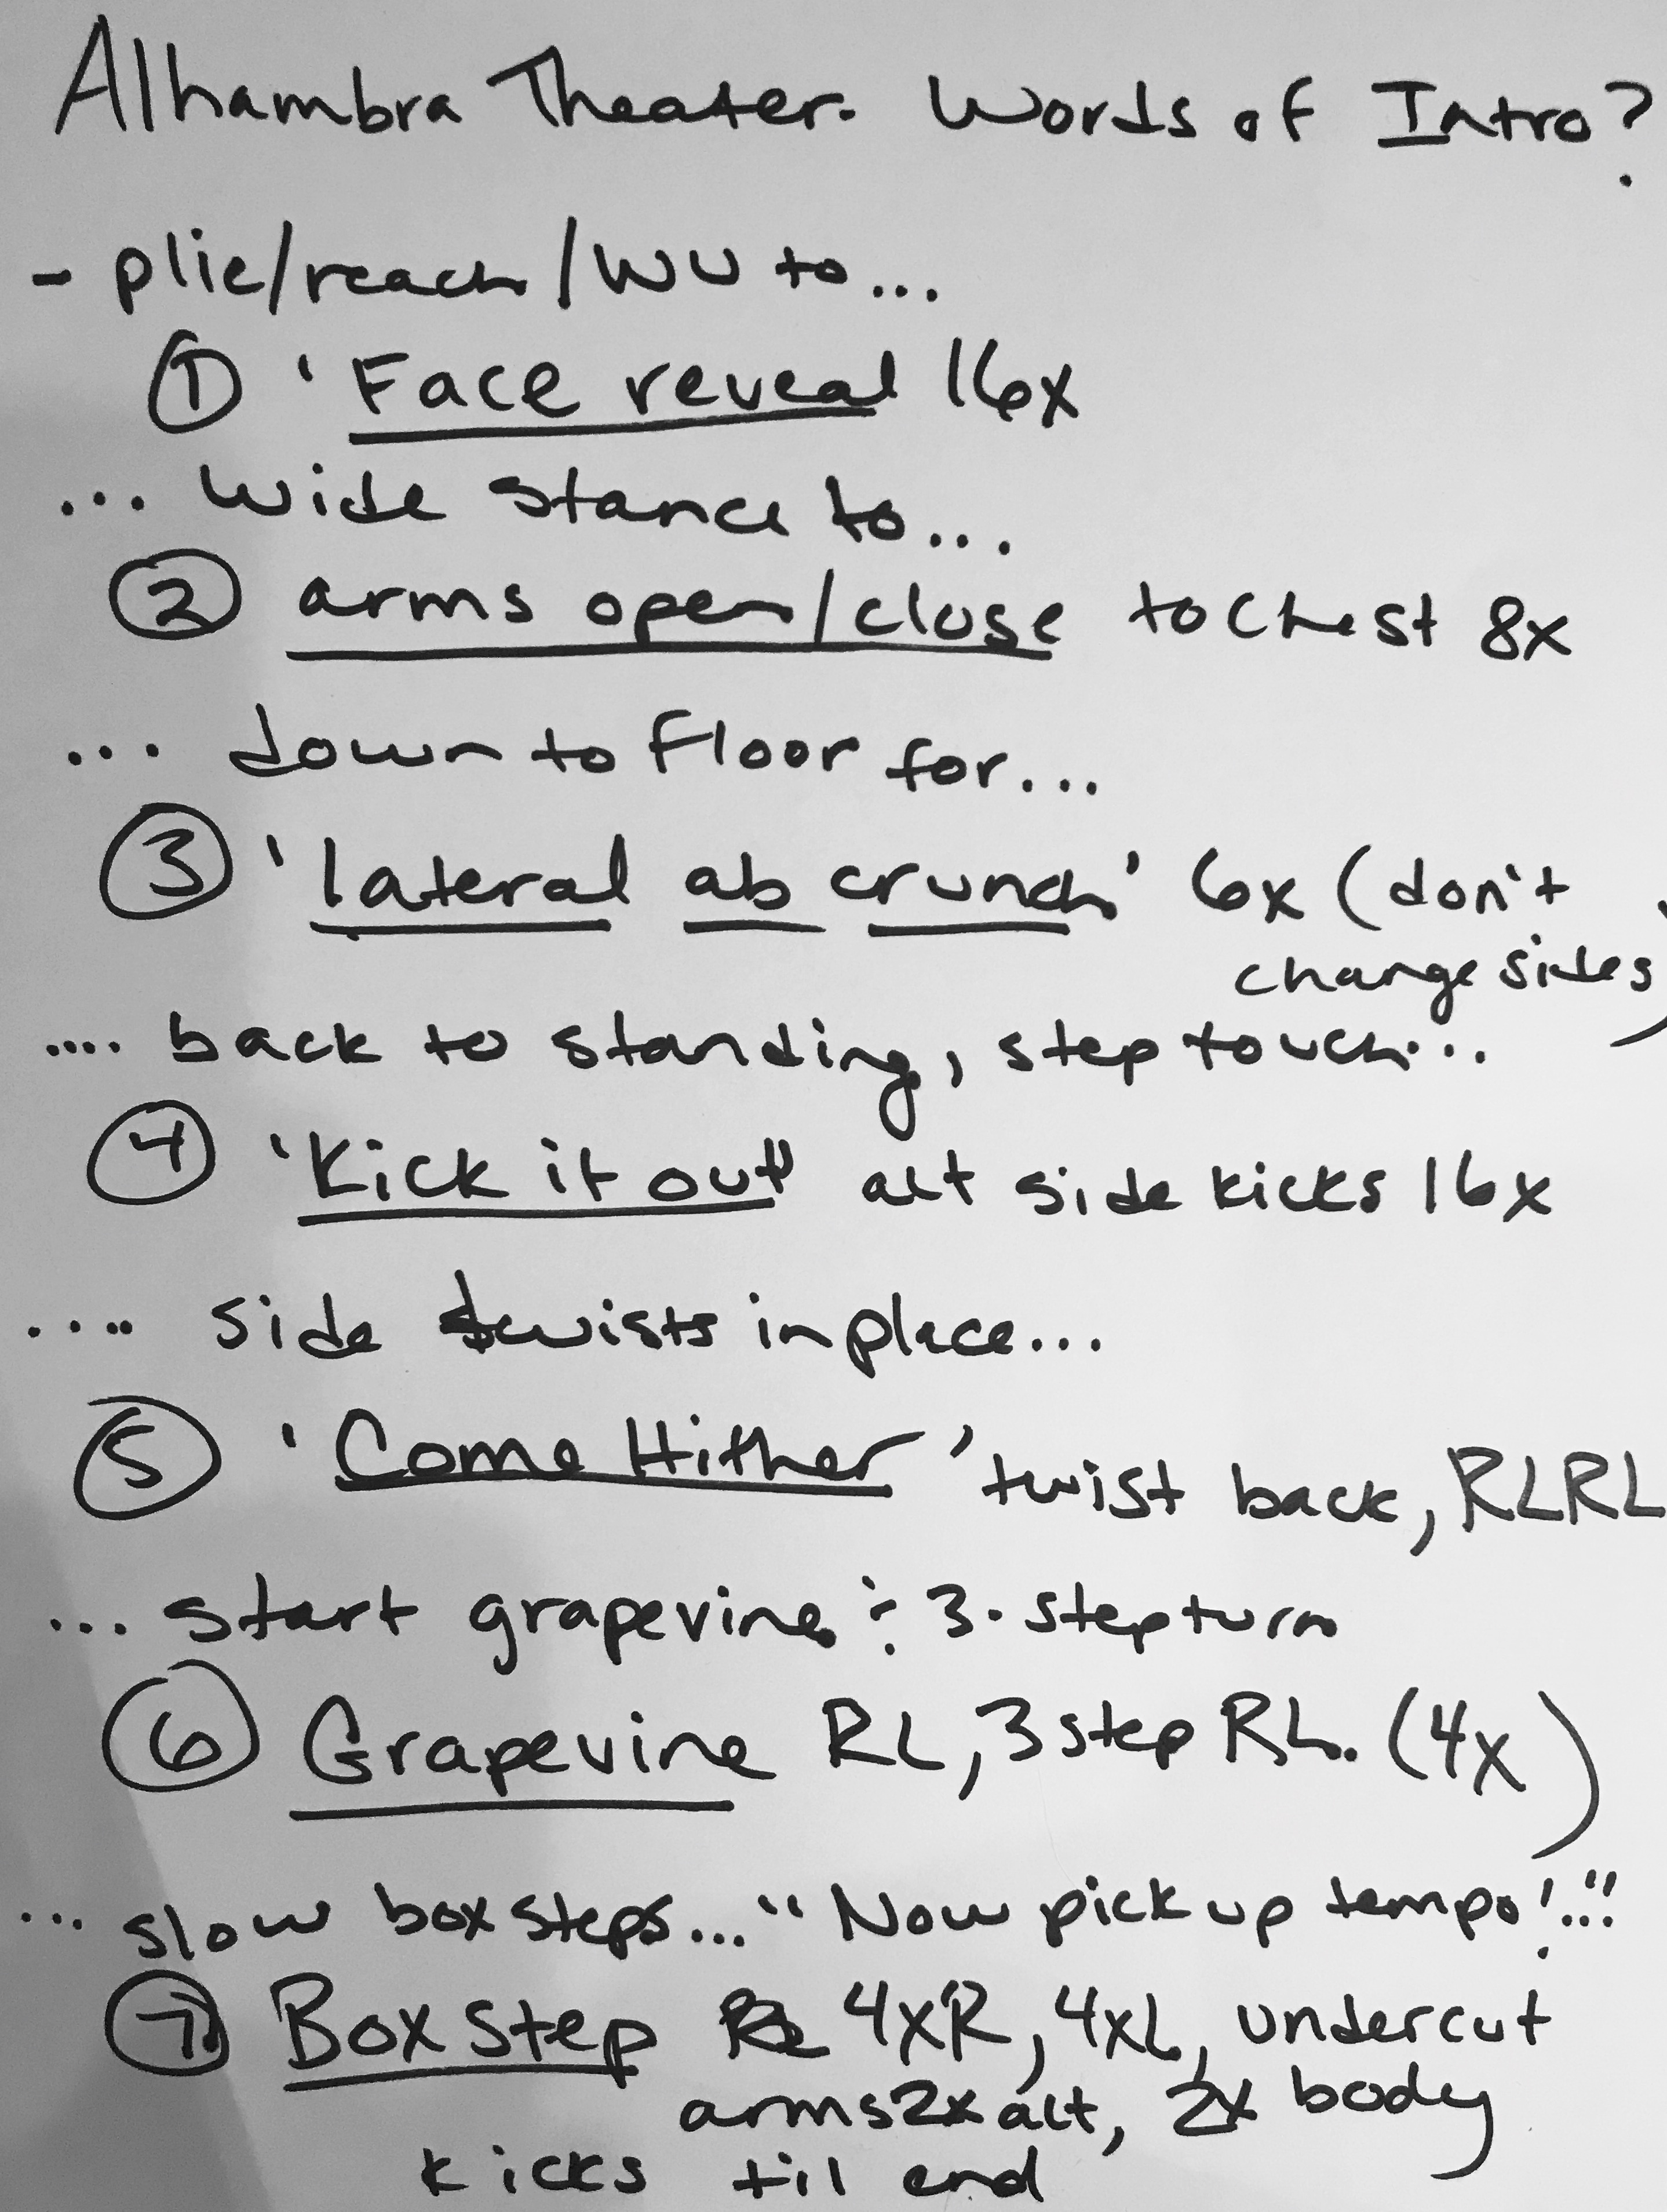 Alhambra Theater. Words of Intro?
- plie/reach/WU to...
① 'Face reveal 16x
... wide stance to...
② arms open/close to chest 8x
... down to floor for...
③ 'lateral ab crunch' 6x (don't
change sides)
.... back to standing, step touch...
④ 'Kick it out" alt side kicks 16x
.... side twists in place...
⑤ 'Come Hither' twist back, RLRL
... start grapevine ÷ 3. step turn
⑥ Grapevine RL, 3 step RL. (4x)
... slow box steps... "Now pick up tempo!..."
⑦ Box step 4xR, 4xL, undercut
arms 2x alt, 2x body
kicks til end